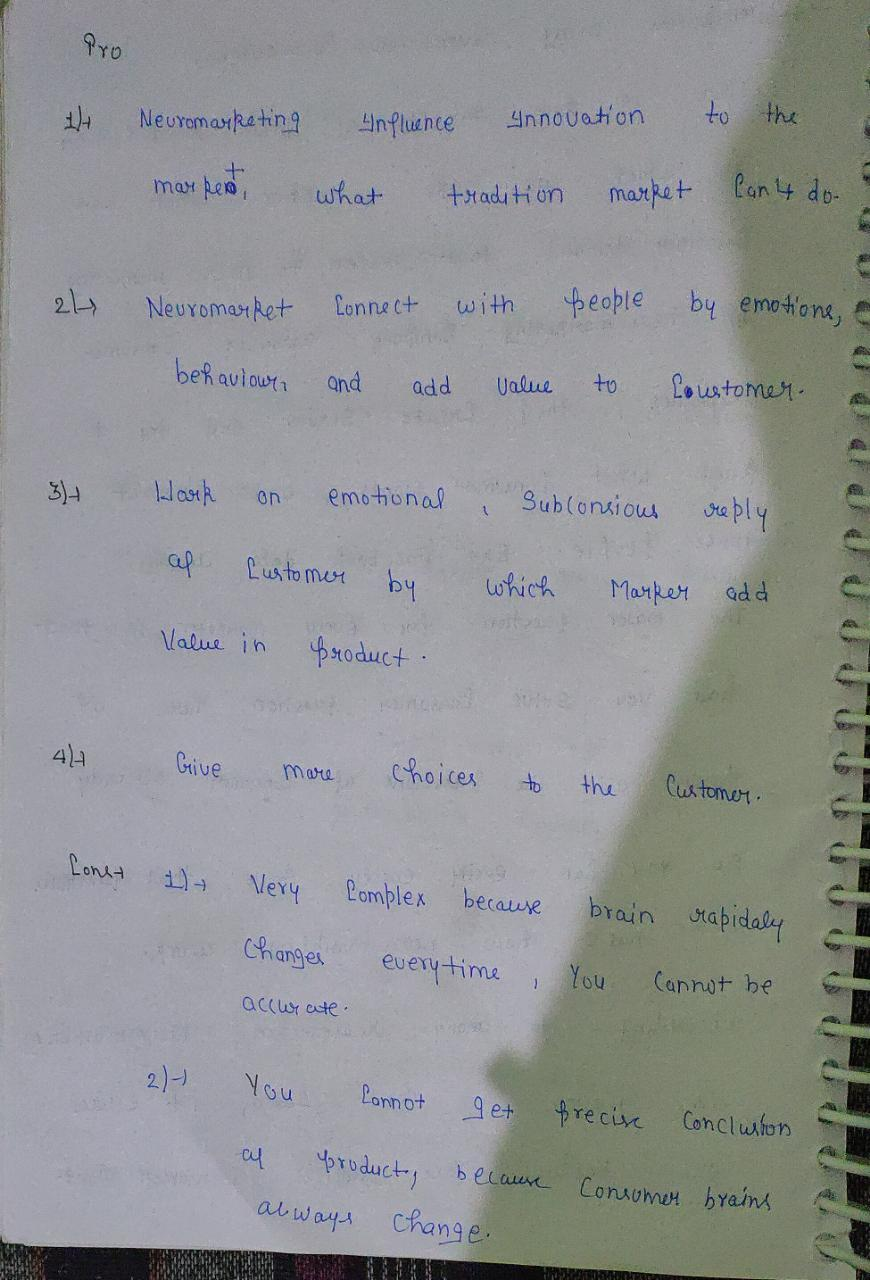 Pro
1)→ Neuromarketing Influence Innovation to the
market, what tradition market Can't do.
2)→ Neuromarket Connect with people by emotions,
behaviour, and add Value to Coustomer.
3)→ Work on emotional, Subconsious reply
of Customer by which Marker add
Value in product.
4)→ Give more Choices to the Customer.
Cons→ 1)→ Very Complex because brain rapidaly
Changes everytime, You Cannot be
accurate.
2)→ You Cannot get precise Conclusion
of product, because Consumer brains
always Change.